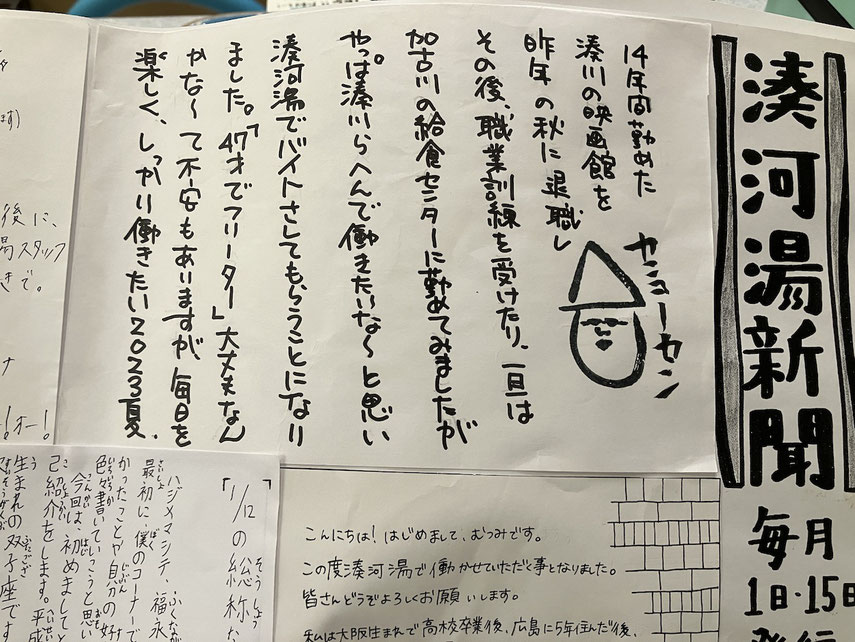 湊河湯新聞
毎月
1日・15日
発行
ヤンニューヤン
14年間勤めた
湊川の映画館を
昨年の秋に退職し
その後、職業訓練を受けたり、一旦は
加古川の給食センターに勤めてみましたが
やっぱ湊川らへんで働きたいな〜と思い
湊河湯でバイトさしてもらうことになり
ました。「47才でフリーター」大丈夫なん
かな〜て不安もありますが毎日を
楽しく、しっかり働きたい2023夏、
こんにちは!はじめまして、むつみです。
この度湊河湯で働かせていただく事となりました。
皆さんどうぞよろしくお願いします。
私は大阪生まれで高校卒業後、広島に5年住んだ後、
「1/12の総称な
ハジメマシテ、福永
最初に、僕のコーナーで
かったことや自分の好
色々書いていこうと思い
今回は、初めましてと
己紹介をします。平成
生まれの双子座です
後に、
湯スタッフ
きで。
ナ
!オー!